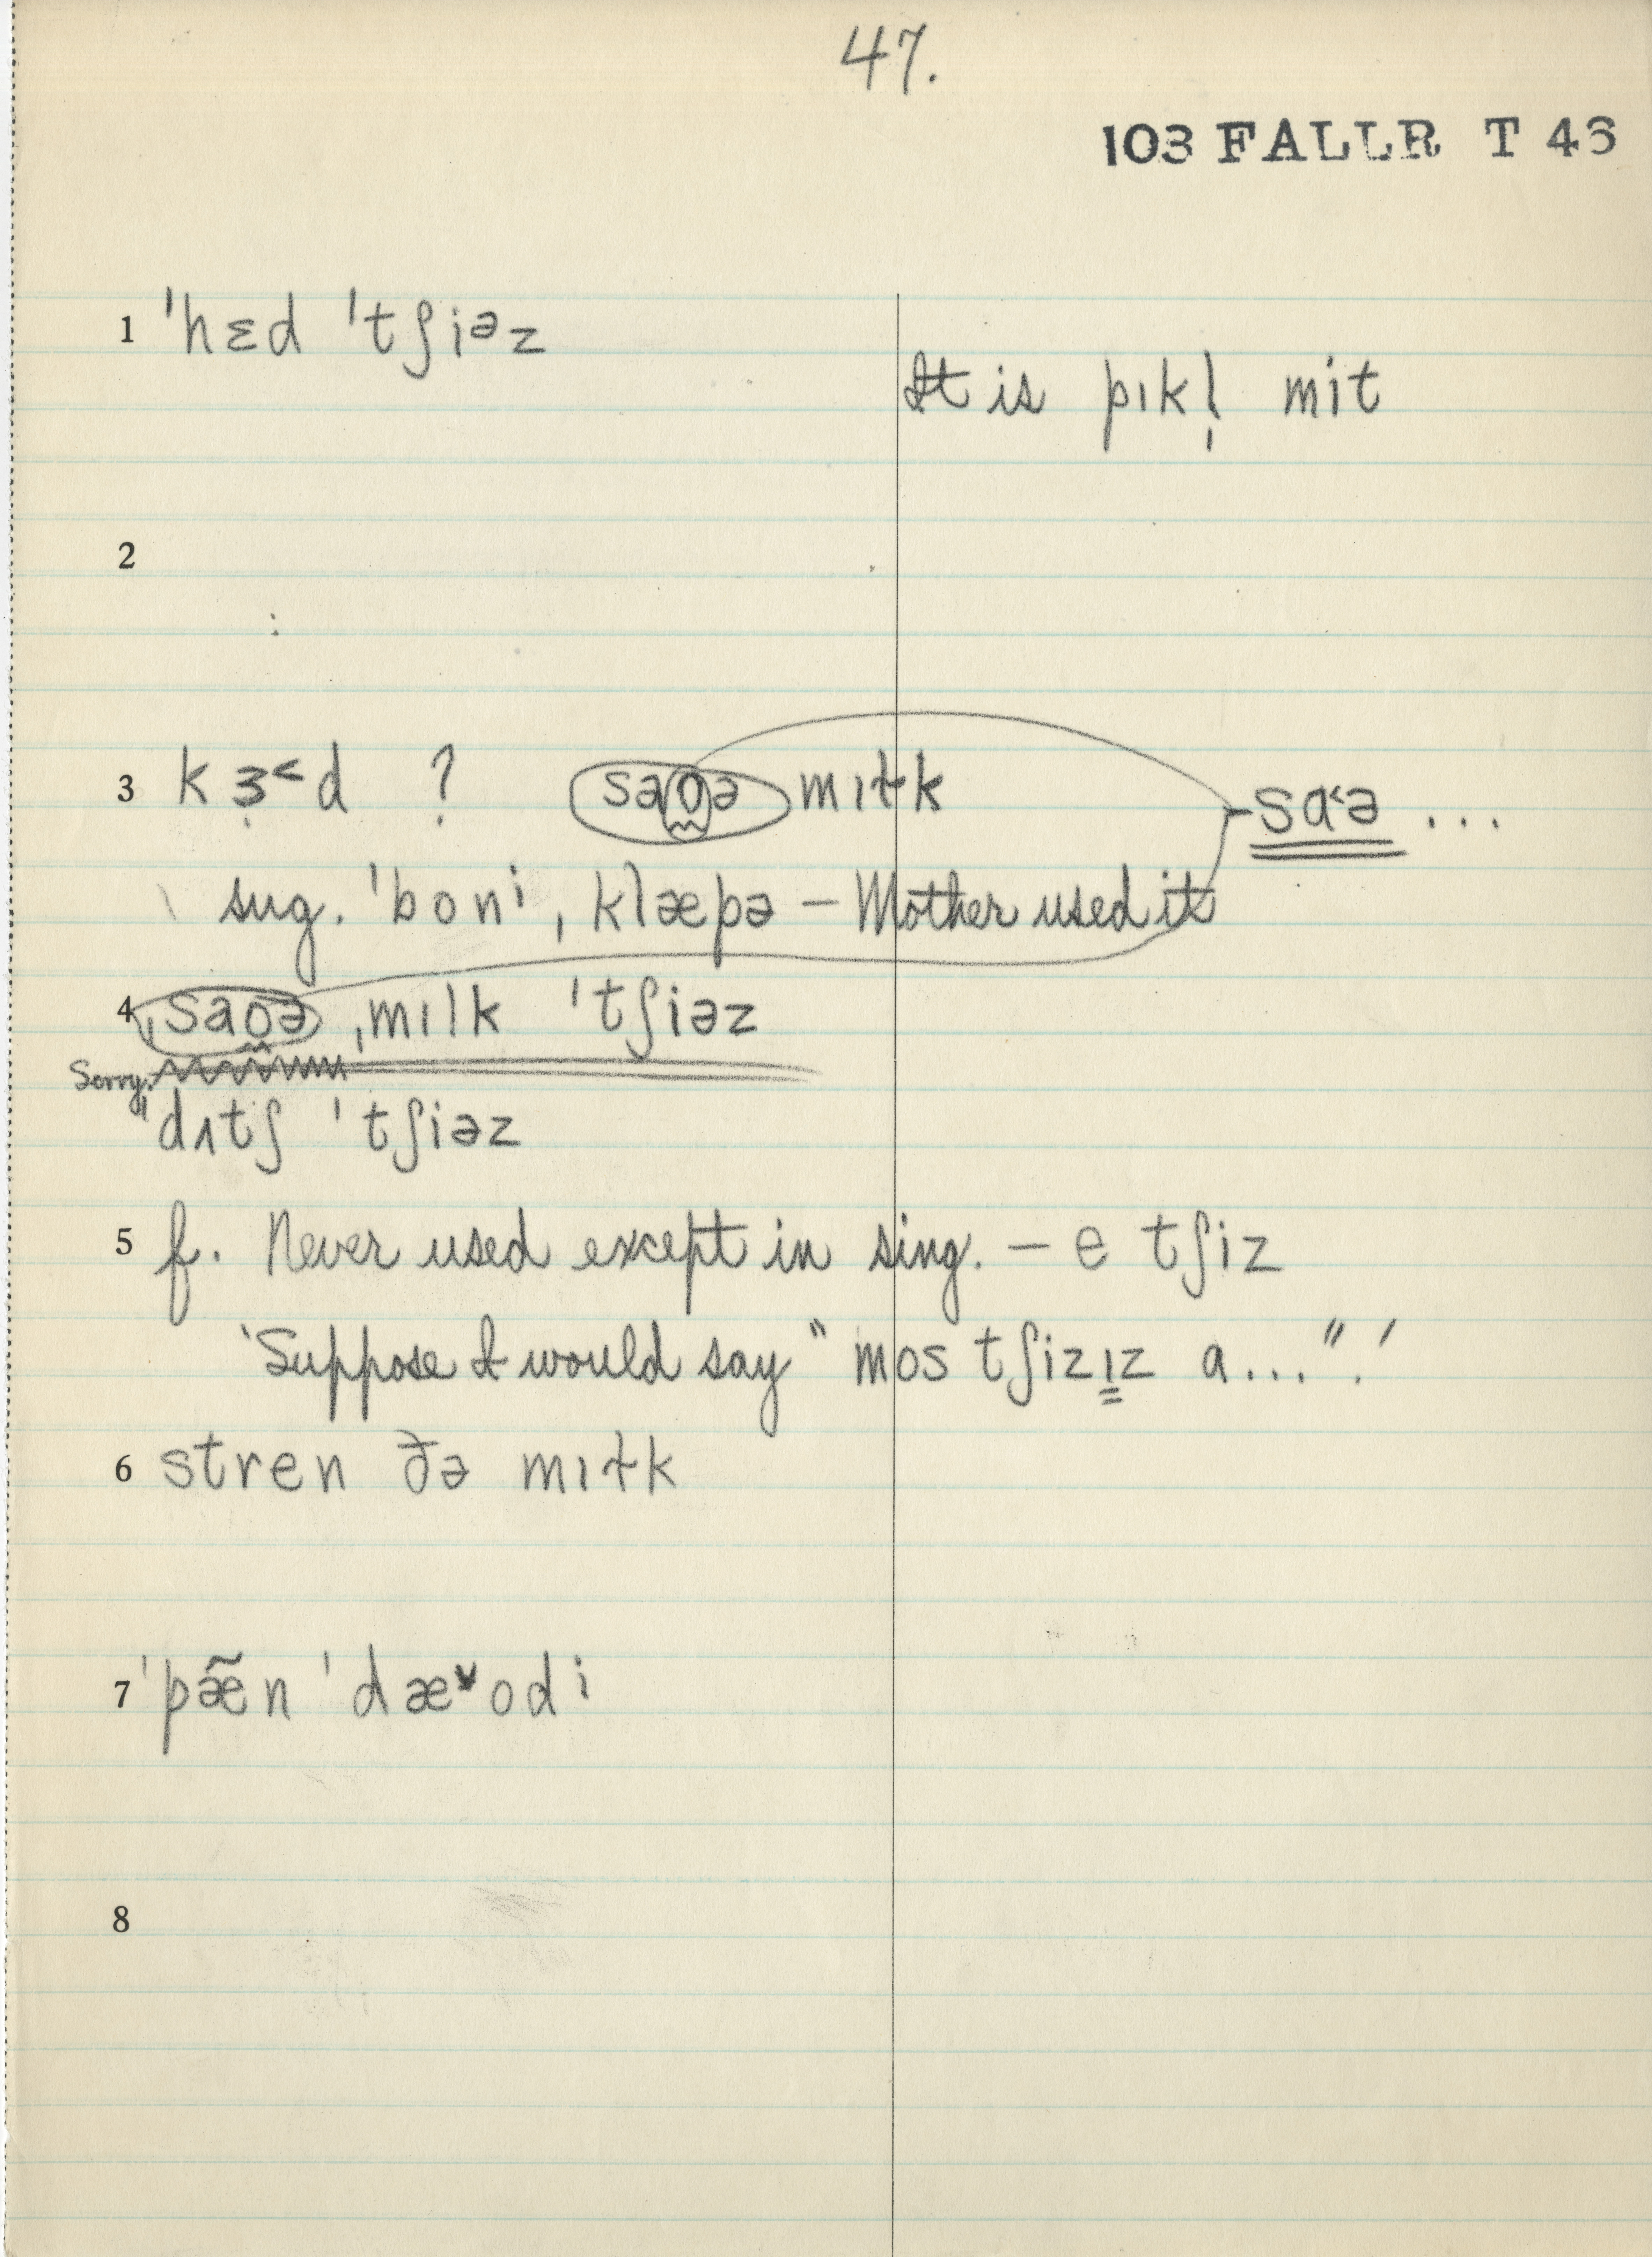 47.
103 FALLR T 46
1 ˈhɛd ˈtʃiəz
It is pɪkl̩ mit
2
3 k ɜ̣˂d ? saʊə mɪɫk
sɑ˂ə ...
sug. ˈboni, klæpə – Mother used it
4 ˌsaʊə ˌmɪlk ˈtʃiəz
Sorry.
"dʌtʃ ˈtʃiəz
5 f. Never used except in sing. – e tʃiz
'Suppose I would say "mos tʃizɪz a..." .'
6 stren ðə mɪɫk
7 ˈpæ̃n ˈdæ˅odi
8